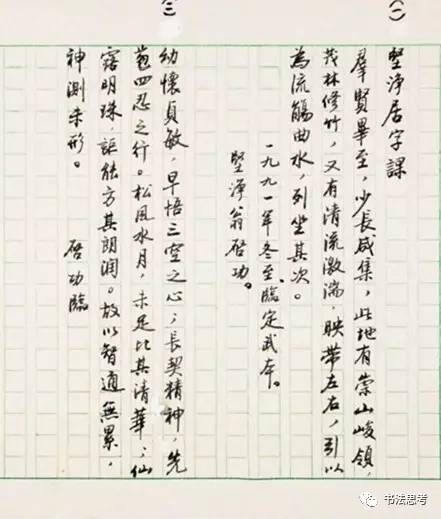 (一)
堅淨居字課
羣賢畢至，少長咸集，此地有崇山峻領，
茂林修竹，又有清流激湍，映帶左右，引以
為流觴曲水，列坐其次。
一九九一年冬至，臨定武本。
堅淨翁啓功。
(二)
幼懷貞敏，早悟三空之心；長契精神，先
苞四忍之行。松風水月，未足比其清華；仙
露明珠，詎能方其朗潤。故以智通無累，
神測未形。 啓功臨
书法思考